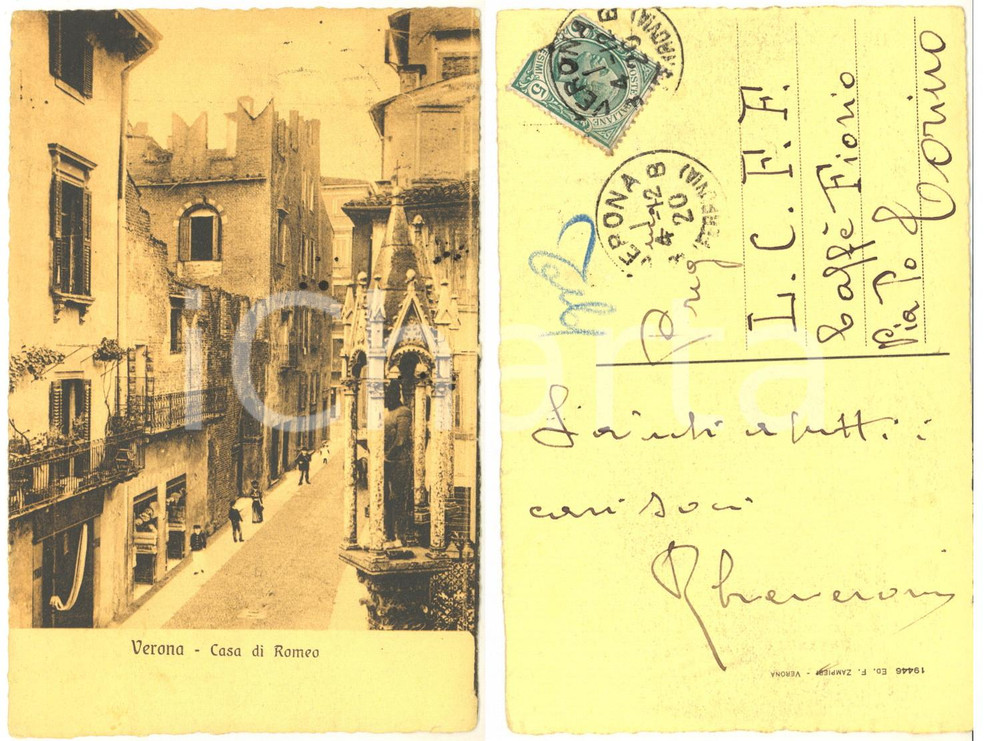 Verona - Casa di Romeo
POSTE ITALIANE
CENTESIMI 5
VERONA
(FERROVIA)
20
VERONA
4 - 12 B
20
(FERROVIA)
L. C. F. F.
Caffè Fiorio
Via Po
Torino
Saluti a tutti i
cari soci
19446 ED. F. ZAMPIERI - VERONA
iCharta